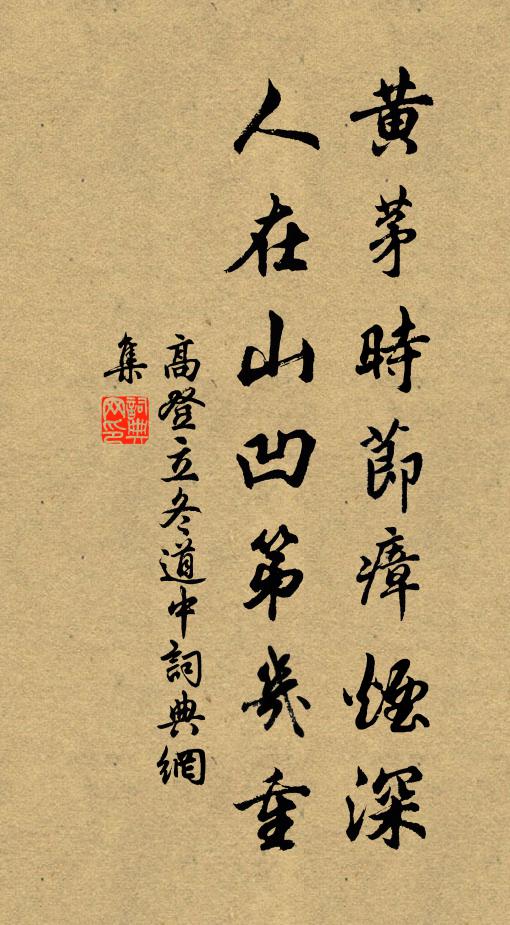 黄茅時節瘴煙深
人在山凹第幾重
高登立冬道中詞典網
集
詞典網印